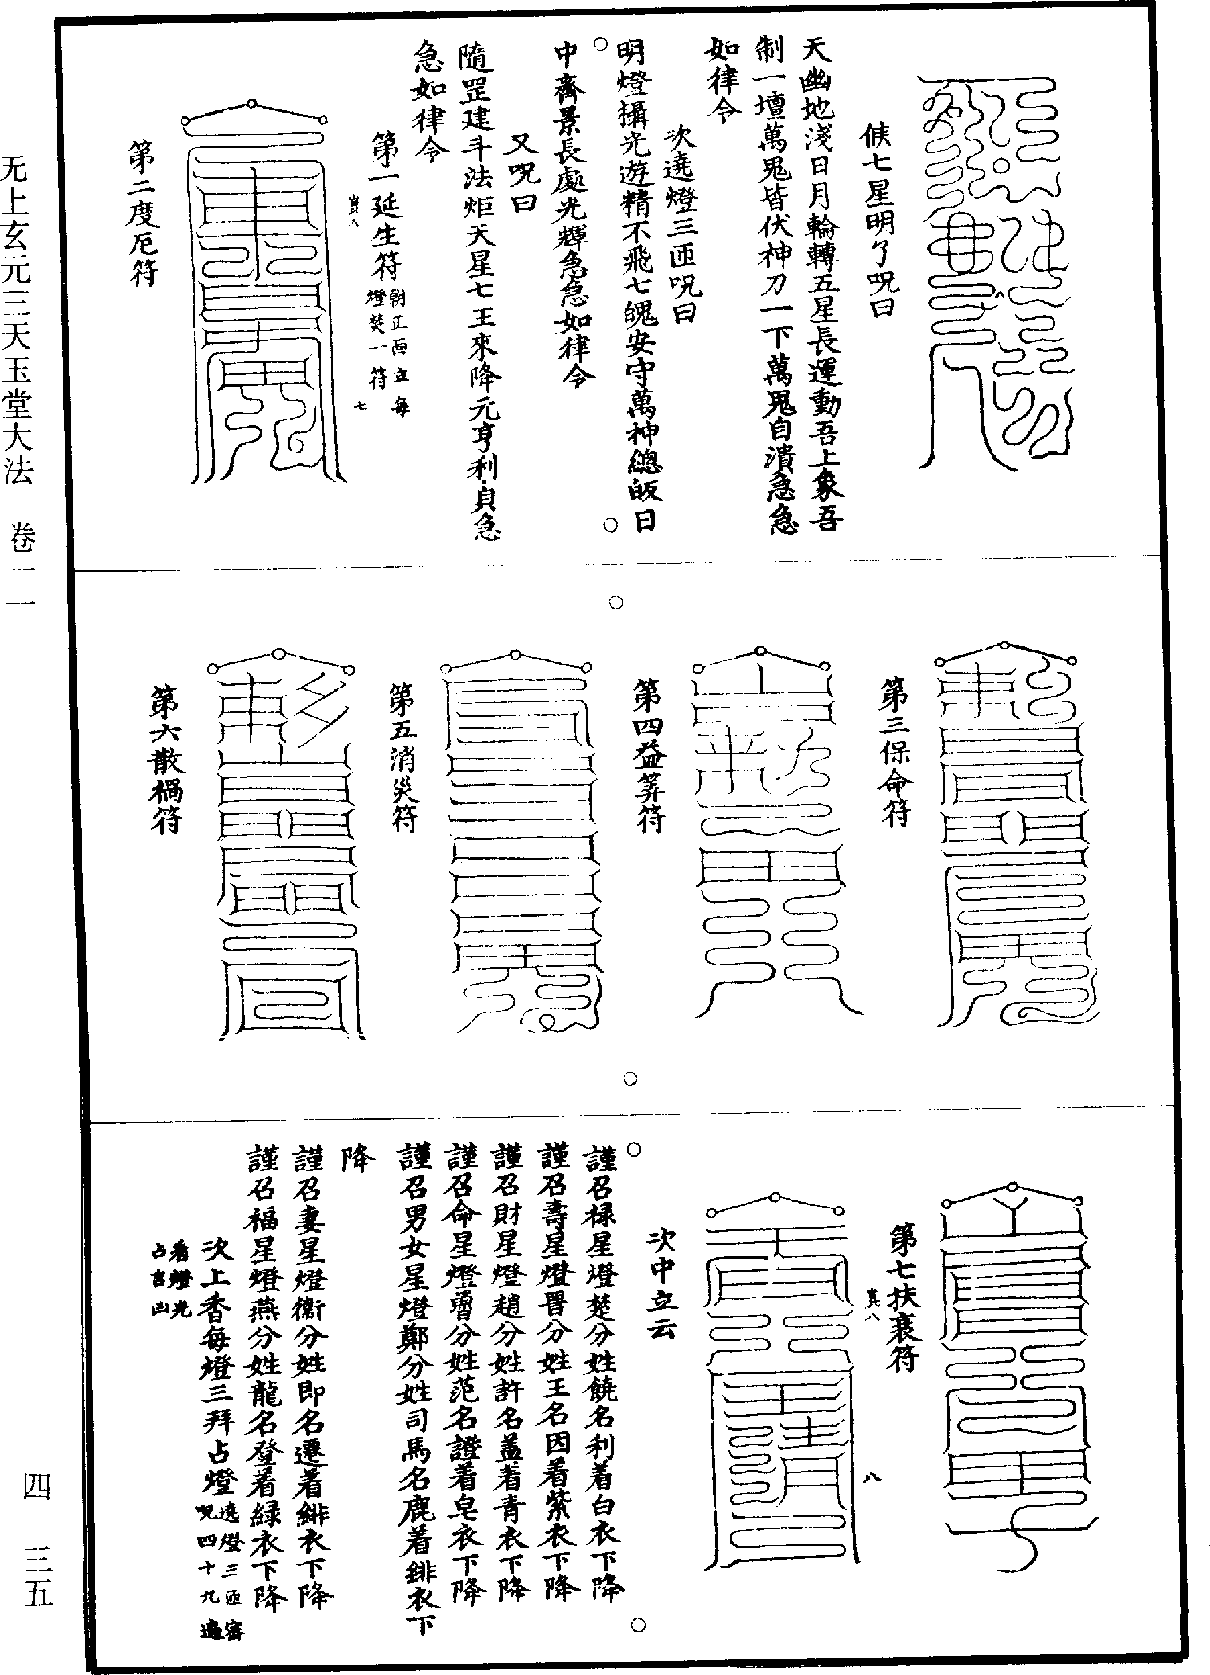 候七星明了呪曰
天幽地淺日月輪轉五星長運動吾上象吾
制一壇萬鬼皆伏神刀一下萬鬼自潰急急
如律令
次遶燈三匝呪曰
明燈攝光遊精不飛七魄安守萬神總皈日
中齋景長處光輝急急如律令
又呪曰
隨罡建斗法炬天星七王來降元亨利貞急
急如律令
第一延生符
燈焚一符
第二度厄符
第三保命符
第四益筭符
第五消災符
第六散禍符
第七扶衰符
次中立云
謹召祿星燈楚分姓饒名利着白衣下降
謹召壽星燈晋分姓王名因着紫衣下降
謹召財星燈趙分姓許名盖着青衣下降
謹召命星燈魯分姓范名證着皂衣下降
謹召男女星燈鄭分姓司馬名鹿着緋衣下
降
謹召妻星燈衞分姓即名遷着緋衣下降
謹召福星燈燕分姓龍名登着綠衣下降
次上香每燈三拜占燈遶燈三匝密
呪四十九遍
看燈光
占吉凶
无上玄元三天玉堂大法 卷二一
四 三五